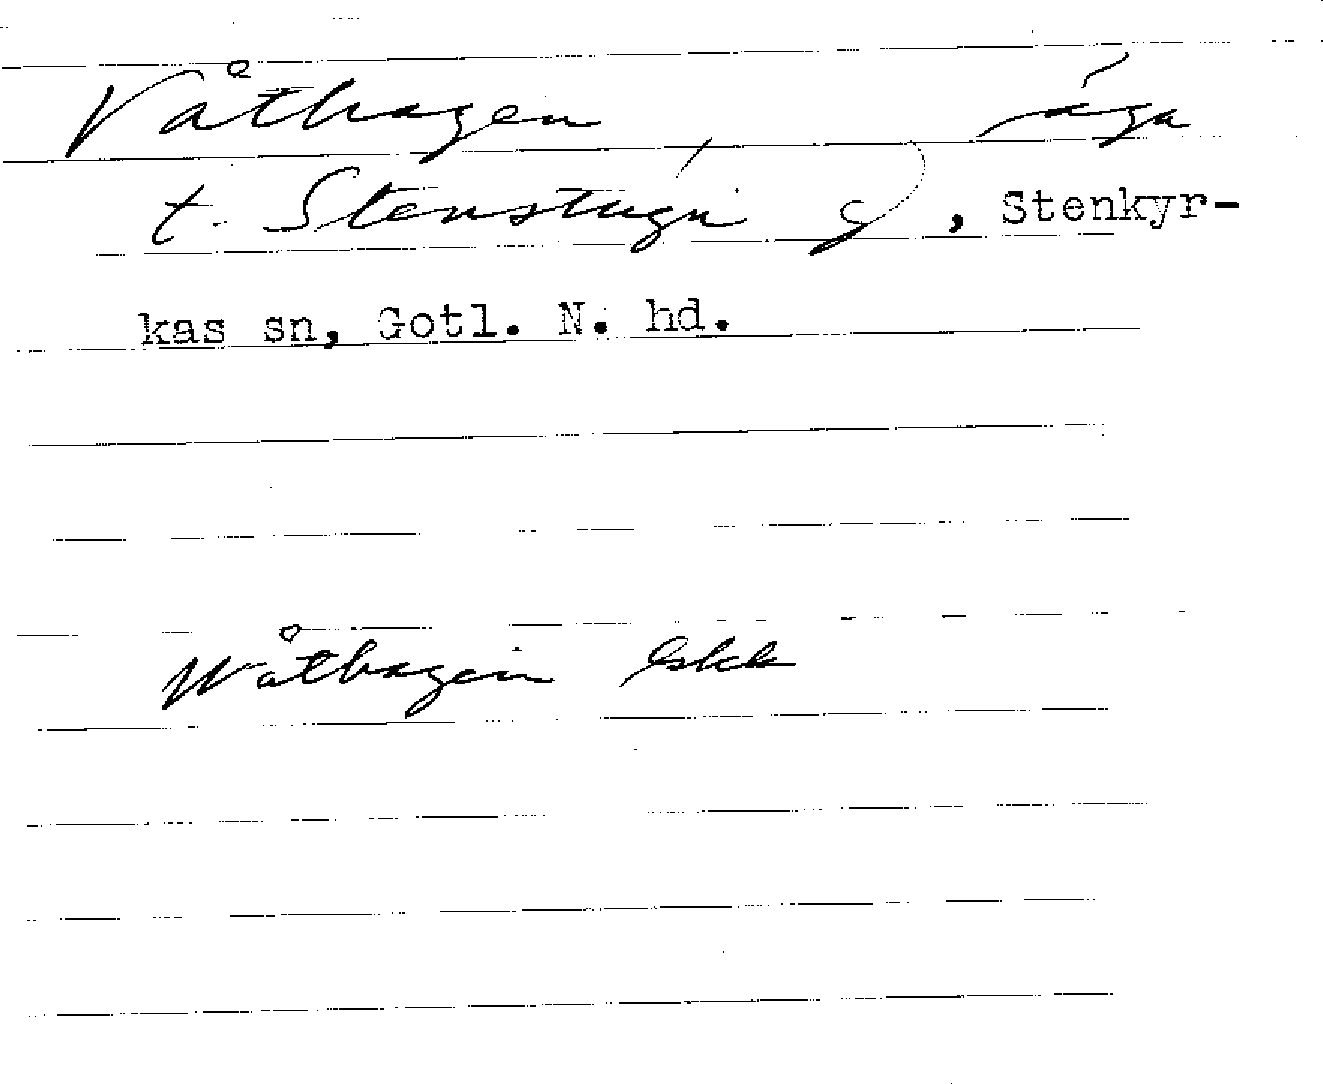 Våthagen äga
t. Stenstugu g, Stenkyr-
kas sn, Gotl. N. hd.
Wåthagen